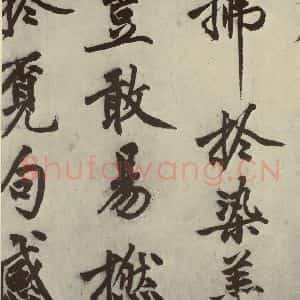 拂於染
豈敢易撚
於覓句感
Shufawang.CN